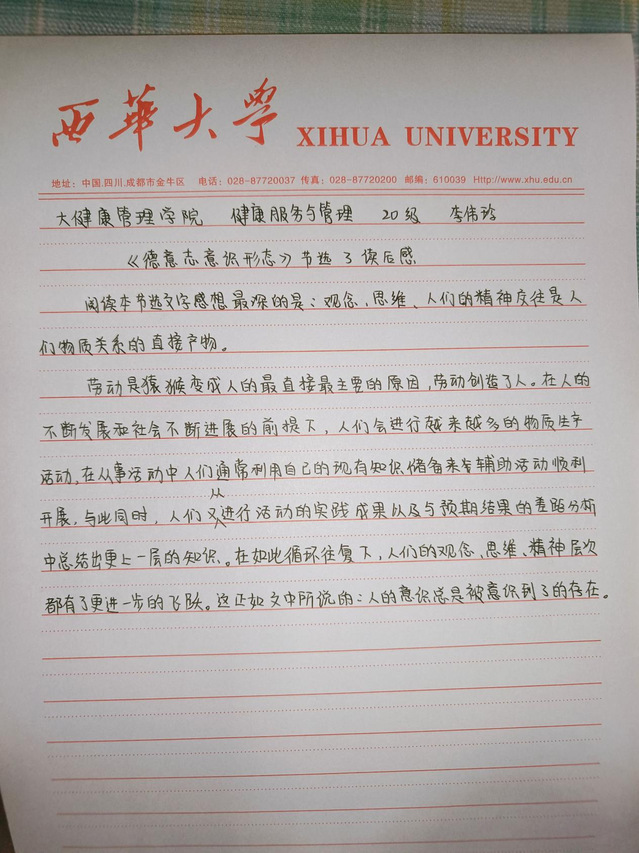 西華大學 XIHUA UNIVERSITY
地址：中国.四川.成都市金牛区 电话：028-87720037 传真：028-87720200 邮编：610039 Http://www.xhu.edu.cn
大健康管理学院 健康服务与管理 20级 李伟玲
《德意志意识形态》节选3读后感
阅读本节选文字感想最深的是：观念、思维、人们的精神交往是人
们物质关系的直接产物。
劳动是猿猴变成人的最直接最主要的原因，劳动创造了人。在人的
不断发展和社会不断进展的前提下，人们会进行越来越多的物质生产
活动，在从事活动中人们通常利用自己的现有知识储备来辅助活动顺利
从
开展，与此同时，人们又进行活动的实践成果以及与预期结果的差距分析
中总结出更上一层的知识。在如此循环往复下，人们的观念、思维、精神层次
都有了更进一步的飞跃。这正如文中所说的：人的意识总是被意识到了的存在。